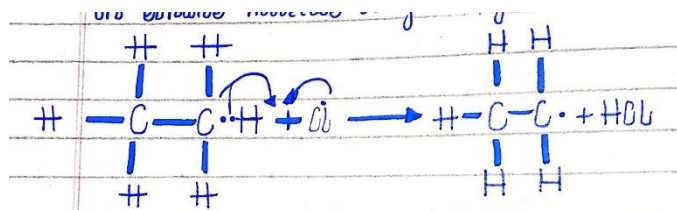 H H H H
H — C — C •• H + Cl• → H – C – C • + HCl
H H H H